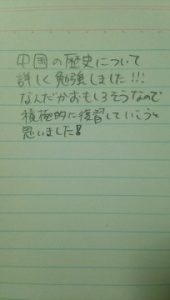 中国の歴史について
詳しく勉強しました!!!
なんだかおもしろそうなので
積極的に復習していこうと
思いました!